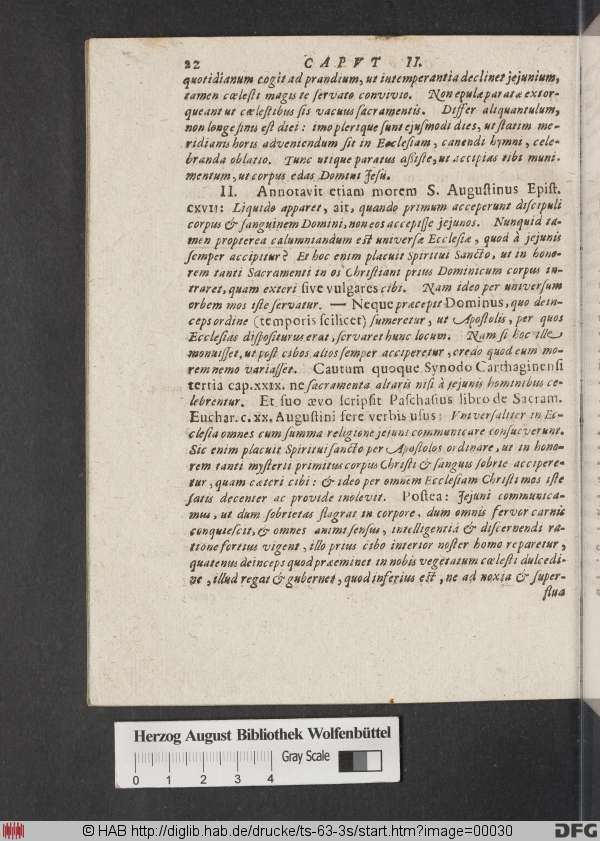 22 CAPVT II.
quotidianum cogit ad prandium, ut intemperantia declinet jejunium,
tamen cœlesti magis te servato convivio. Non epulæ paratæ extor-
queant ut cœlestibus sis vacuus sacramentis. Differ aliquantulum,
non longe finis est diei: imo plerique sunt ejusmodi dies, ut statim me-
ridianis horis adveniendum sit in Ecclesiam, canendi hymni, cele-
branda oblatio. Tunc utique paratus assiste, ut accipias tibi muni-
mentum, ut corpus edas Domini Jesu.
II. Annotavit etiam morem S. Augustinus Epist.
CXVII: Liquido apparet, ait, quando primum acceperunt discipuli
corpus & sanguinem Domini, non eos accepisse jejunos. Nunquid ta-
men propterea calumniandum est universæ Ecclesiæ, quod à jejunis
semper accipitur? Et hoc enim placuit Spiritui Sancto, ut in hono-
rem tanti Sacramenti in os Christiani prius Dominicum corpus in-
traret, quam exteri sive vulgares cibi. Nam ideo per universum
orbem mos iste servatur. — Neque præcepit Dominus, quo dein-
ceps ordine (temporis scilicet) sumeretur, ut Apostolis, per quos
Ecclesias dispositurus erat, servaret hunc locum. Nam si hoc ille
monuisset, ut post cibos alios semper acciperetur, credo quod eum mo-
rem nemo variasset. Cautum quoque Synodo Carthaginensi
tertia cap. XXIX. ne sacramenta altaris nisi à jejunis hominibus ce-
lebrentur. Et suo ævo scripsit Paschasius libro de Sacram.
Euchar. c. XX. Augustini fere verbis usus: Vniversaliter in Ec-
clesia omnes cum summa religione jejuni communicare consueverunt.
Sic enim placuit Spiritui sancto per Apostolos ordinare, ut in hono-
rem tanti mysterii primitus corpus Christi & sanguis sobrie accipere-
tur, quam cæteri cibi: & ideo per omnem Ecclesiam Christi mos iste
satis decenter ac provide inolevit. Postea: Jejuni communica-
mus, ut dum sobrietas flagrat in corpore, dum omnis fervor carnis
conquiescit, & omnes animi sensus, intelligentia & discernendi ra-
tione fortius vigent, illo prius cibo interior noster homo reparetur,
quatenus deinceps quod præeminet in nobis vegetatum cœlesti dulcedi-
ne, illud regat & gubernet, quod inferius est, ne ad noxia & super-
flua
Herzog August Bibliothek Wolfenbüttel
Gray Scale
0 1 2 3 4
© HAB http://diglib.hab.de/drucke/ts-63-3s/start.htm?image=00030
DFG